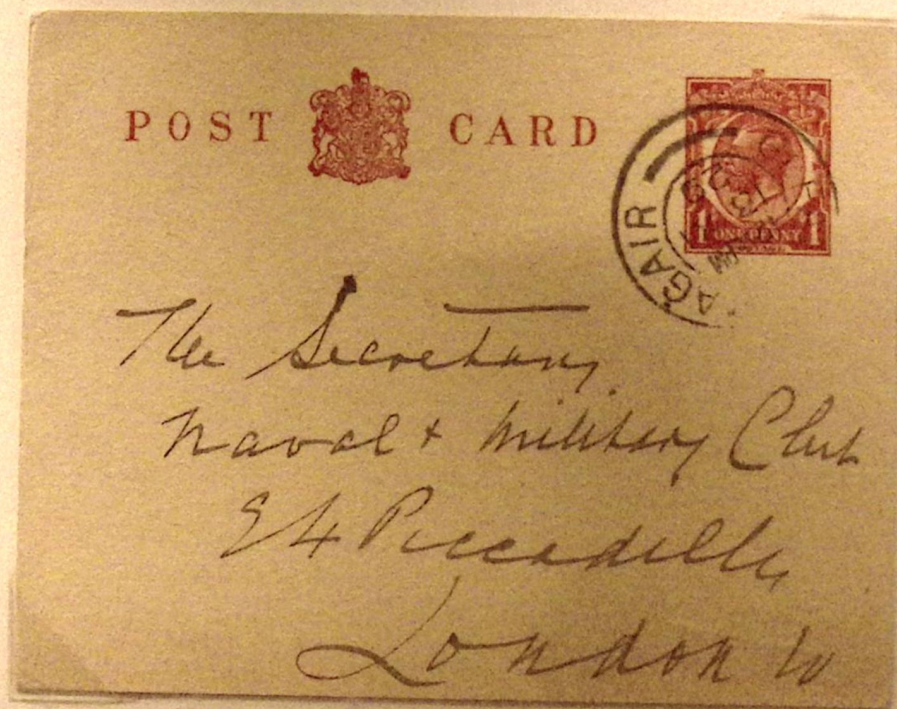 POST CARD
1 ONE PENNY 1
AGAIR
The Secretary
Naval & Military Club
94 Piccadilly
London W